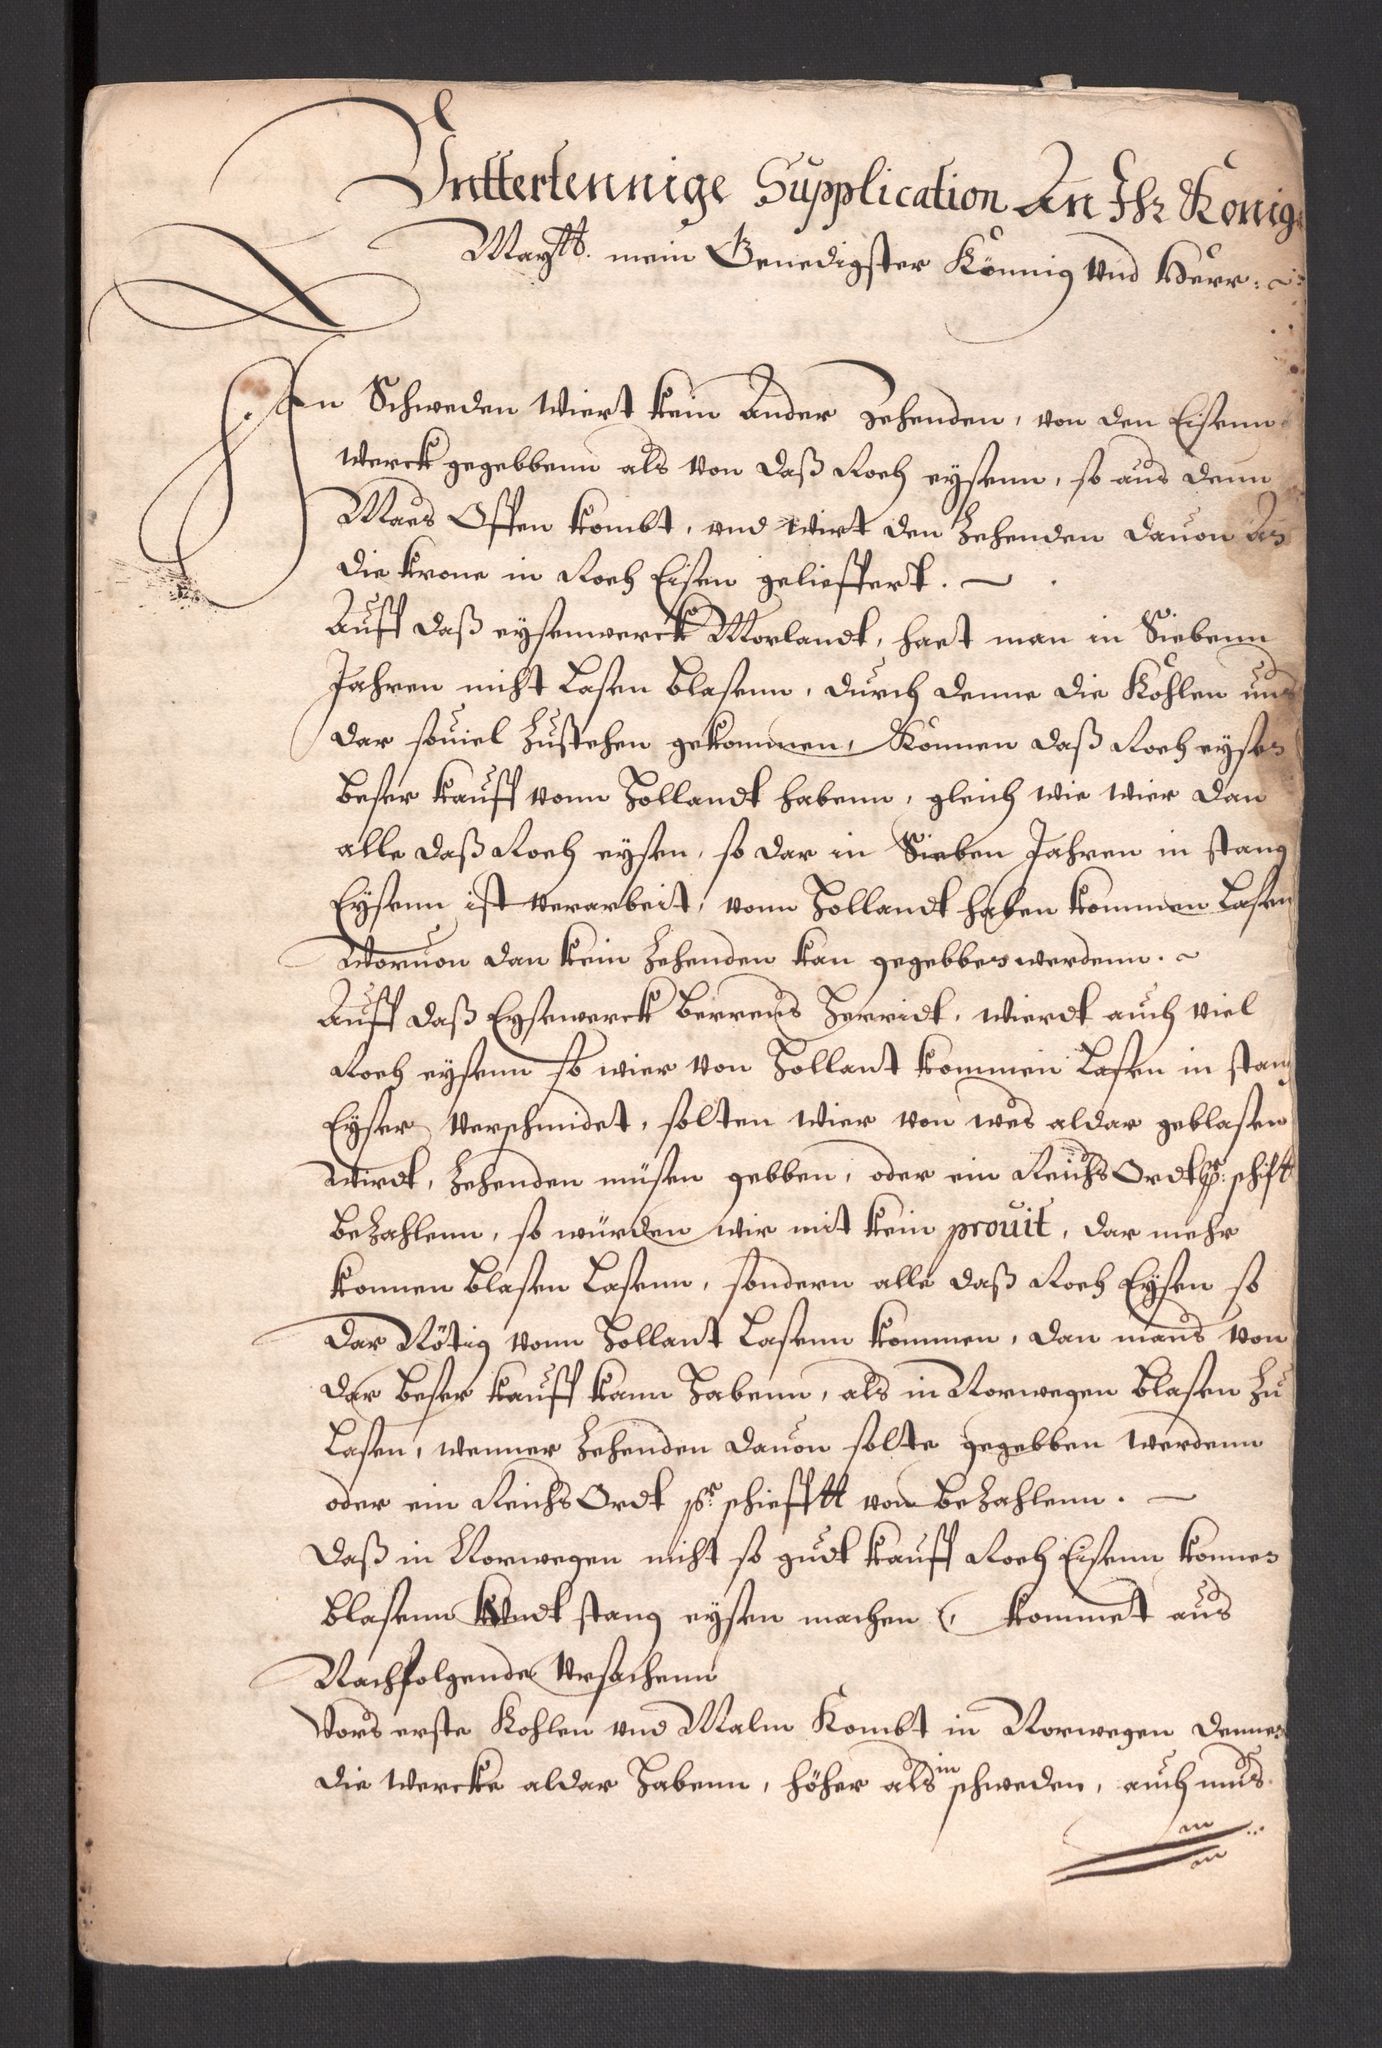 Unttertennige Supplication An Ihr König
Maytt. mein Genedigster Könnig Und Herr:
In Schweden wiert kein Ander Zehenden, von den Eisenn
werck gegebbenn als von daß Roeh eysenn, so aus denn
Maes Offen kombt, und wirt den Zehenden dauon An
die krone in Roeh Eisen gelieffert.
Auff daß eysenwerck Morlandt, haet man in Siebenn
Jahren nicht Lasen blasenn, durch denne die Kohlen uns
dar souiel Zustehen gekommen, Können daß Roeh eysen
beser kauff vonn Hollandt habenn, gleich wie wier dan
alle daß Roeh eysen, so dar in Sieben Jahren in stang
Eysenn ist verarbeit, vonn Hollandt haben kommen Lasen
Woruon dan kein Zehenden kan gegebben werdenn.
Auff daß Eysewerck Berrens Herridt, wierdt auch viel
Roeh eysenn so wier von Hollant kommen Lasen in stang
Eysen verschmidet, solten wier von wes aldar geblasen
wirdt, Zehenden müsen gebben, oder ein Reichs Ordt pr: schift
beZahlenn, so würden wir mit kein prouit, dar mehr
konnen blasen Lasenn, sondern alle daß Roeh Eysen so
dar Nötig vonn Hollant Lasenn kommen, dan mans von
dar beser kauff kann Habenn, als in Norwegen blasen Zu
Lasen, wenner Zehenden dauon solte gegebben werdenn
oder ein Reichs Ordt pr schiefftt von beZahlenn.
Daß in Norwegen nicht so gudt kauff Roeh Eisenn konnen
blasenn Undt stang eysen machen, kommet aus
Nachfolgende Ursachenn
Vors erste Kohlen und Malm Kombt in Norwegen dennen
die wercke aldar Habenn, höher als in schweden, auch mus
an
an